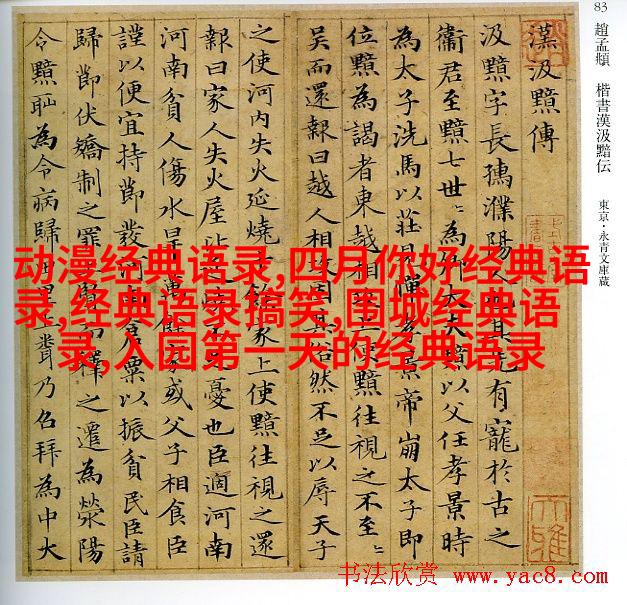 83 趙孟頫 楷書漢汲黯伝 東京・永青文庫蔵
漢汲黯傳
汲黯字長孺濮陽人 其先有寵於古之
衞君至黯七世〻為 大夫黯以父任孝景時
為太子洗馬以莊見憚孝景帝崩太子即
位黯為謁者東越相攻上使黯往視之不至〻
吳而還報曰越人相攻固其俗然不足以辱天子
之使河內失火延燒 餘家上使黯往視之還
報曰家人失火屋比 不足憂也臣適河南
河南貧人傷水旱萬餘家或父子相食臣
謹以便宜持節發河南倉粟以振貧民臣請
歸節伏矯制之罪上賢而釋之遷為滎陽
令黯恥為令病歸田里上 乃召拜為中大
动漫经典语录,四月你好经典语
录,经典语录搞笑,围城经典语
录,入园第一天的经典语录
书法欣赏 www.yac8.com